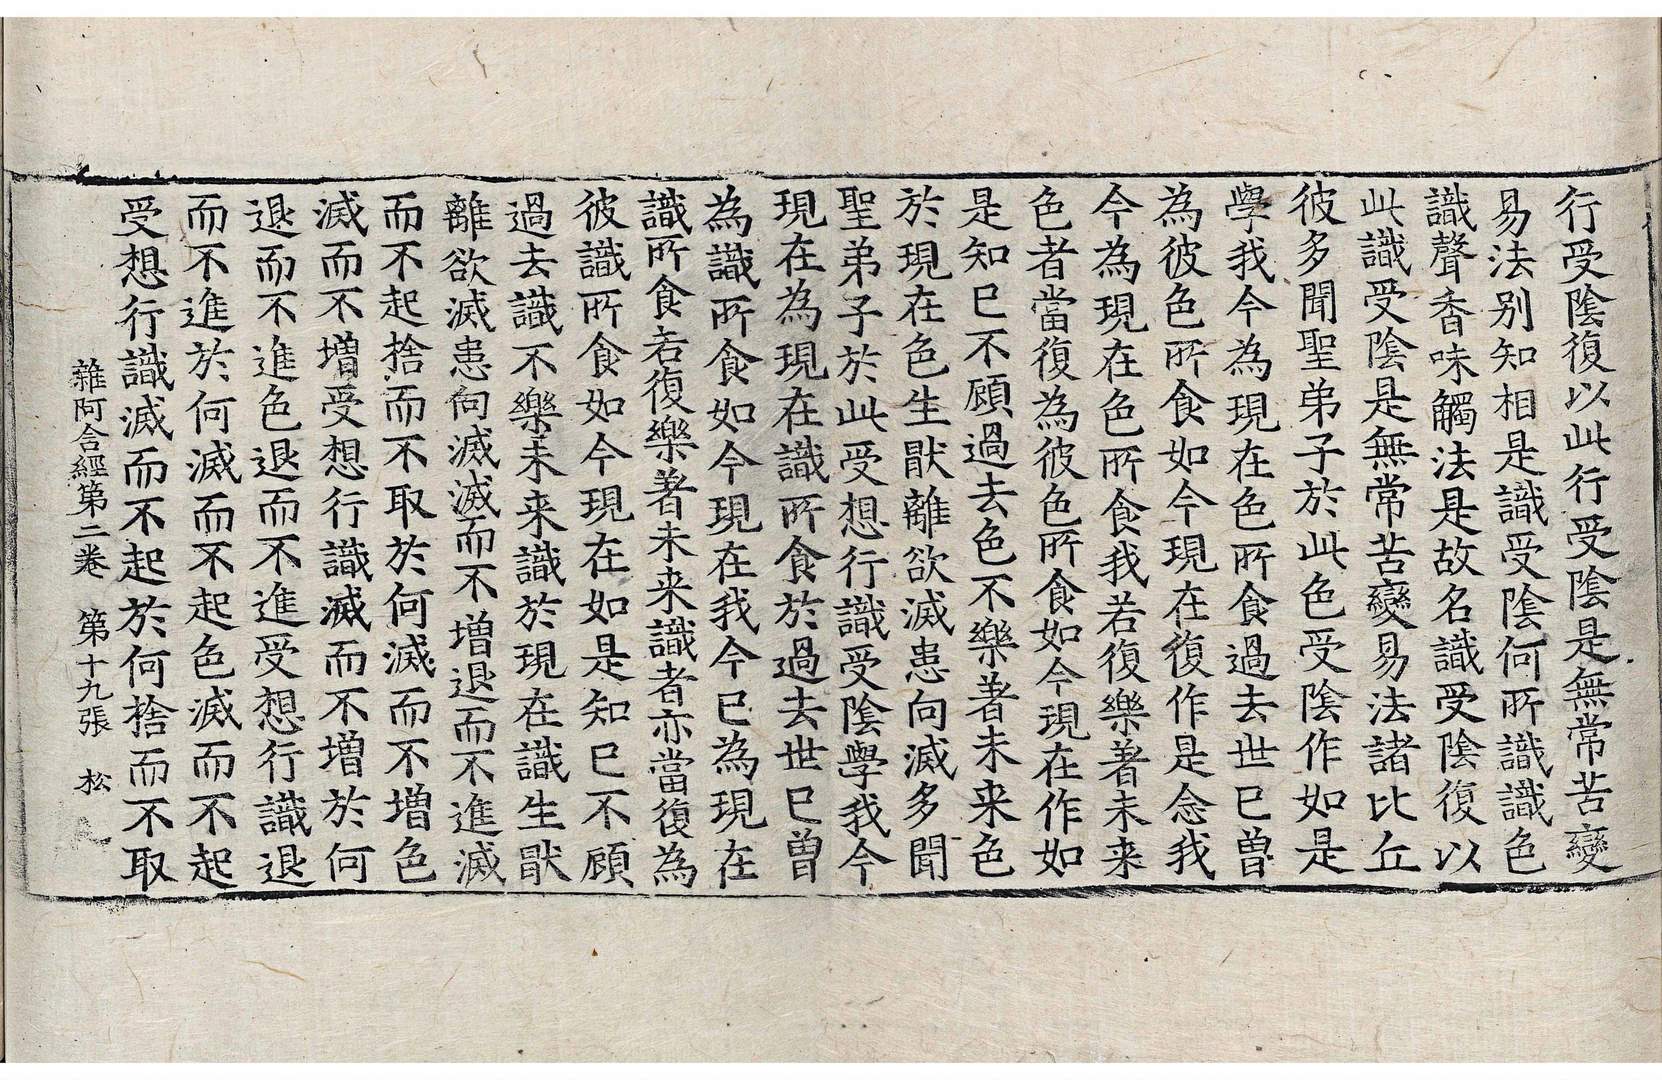 行受陰復以此行受陰是無常苦變
易法別知相是識受陰何所識識色
識聲香味觸法是故名識受陰復以
此識受陰是無常苦變易法諸比丘
彼多聞聖弟子於此色受陰作如是
學我今為現在色所食過去世已曾
為彼色所食如今現在復作是念我
今為現在色所食我若復樂著未来
色者當復為彼色所食如今現在作如
是知已不顧過去色不樂著未来色
於現在色生猒離欲滅患向滅多聞
聖弟子於此受想行識受陰學我今
現在為現在識所食於過去世已曾
為識所食如今現在我今已為現在
識所食若復樂著未来識者亦當復為
彼識所食如今現在如是知已不顧
過去識不樂未来識於現在識生猒
離欲滅患向滅滅而不增退而不進滅
而不起捨而不取於何滅而不增色
滅而不增受想行識滅而不增於何
退而不進色退而不進受想行識退
而不進於何滅而不起色滅而不起
受想行識滅而不起於何捨而不取
雜阿含經第二卷 第十九張 松